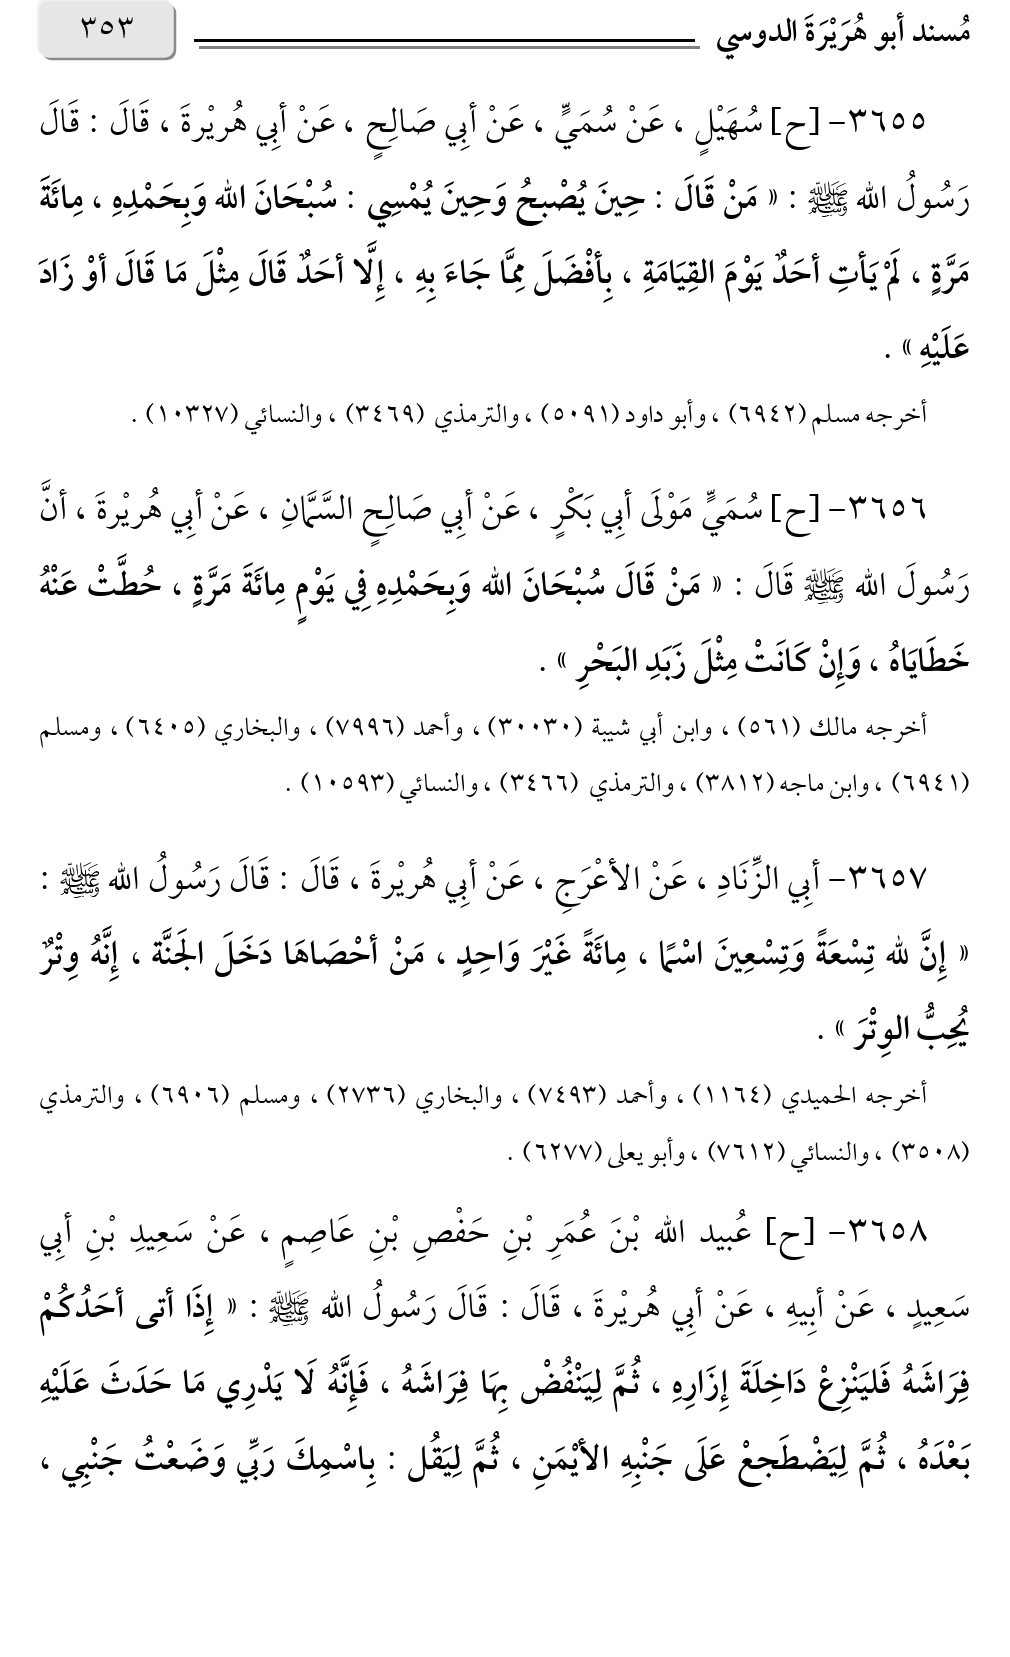 مُسند أبو هُرَيْرَةَ الدوسي ٣٥٣
٣٦٥٥- [ح] سُهَيْلٍ ، عَنْ سُمَيٍّ ، عَنْ أبِي صَالِحٍ ، عَنْ أبِي هُريْرةَ ، قَالَ : قَالَ
رَسُولُ الله ﷺ : « مَنْ قَالَ : حِينَ يُصْبحُ وَحِينَ يُمْسِي : سُبْحَانَ الله وَبِحَمْدِهِ ، مِائَةَ
مَرَّةٍ ، لَمْ يَأتِ أحَدٌ يَوْمَ القِيَامَةِ ، بِأفْضَلَ مِمَّا جَاءَ بِهِ ، إِلَّا أحَدٌ قَالَ مِثْلَ مَا قَالَ أوْ زَادَ
عَلَيْهِ » .
أخرجه مسلم (٦٩٤٢) ، وأبو داود (٥٠٩١) ، والترمذي (٣٤٦٩) ، والنسائي (١٠٣٢٧) .
٣٦٥٦- [ح] سُمَيٍّ مَوْلَى أبِي بَكْرٍ ، عَنْ أبِي صَالِحٍ السَّمَّانِ ، عَنْ أبِي هُريْرةَ ، أنَّ
رَسُولَ الله ﷺ قَالَ : « مَنْ قَالَ سُبْحَانَ الله وَبِحَمْدِهِ فِي يَوْمٍ مِائَةَ مَرَّةٍ ، حُطَّتْ عَنْهُ
خَطَايَاهُ ، وَإِنْ كَانَتْ مِثْلَ زَبَدِ البَحْرِ » .
أخرجه مالك (٥٦١) ، وابن أبي شيبة (٣٠٠٣٠) ، وأحمد (٧٩٩٦) ، والبخاري (٦٤٠٥) ، ومسلم
(٦٩٤١) ، وابن ماجه (٣٨١٢) ، والترمذي (٣٤٦٦) ، والنسائي (١٠٥٩٣) .
٣٦٥٧- أبِي الزِّنَادِ ، عَنْ الأعْرَجِ ، عَنْ أبِي هُريْرةَ ، قَالَ : قَالَ رَسُولُ الله ﷺ :
« إِنَّ لله تِسْعَةً وَتِسْعِينَ اسْمًا ، مِائَةً غَيْرَ وَاحِدٍ ، مَنْ أحْصَاهَا دَخَلَ الجَنَّة ، إِنَّهُ وِتْرٌ
يُحِبُّ الوِتْرَ » .
أخرجه الحميدي (١١٦٤) ، وأحمد (٧٤٩٣) ، والبخاري (٢٧٣٦) ، ومسلم (٦٩٠٦) ، والترمذي
(٣٥٠٨) ، والنسائي (٧٦١٢) ، وأبو يعلى (٦٢٧٧) .
٣٦٥٨- [ح] عُبيد الله بْنَ عُمَرِ بْنِ حَفْصِ بْنِ عَاصِمٍ ، عَنْ سَعِيدِ بْنِ أبِي
سَعِيدٍ ، عَنْ أبِيهِ ، عَنْ أبِي هُريْرةَ ، قَالَ : قَالَ رَسُولُ الله ﷺ : « إِذَا أتى أحَدُكُمْ
فِرَاشَهُ فَليَنْزِعْ دَاخِلَةَ إِزَارِهِ ، ثُمَّ لِيَنْفُضْ بِهَا فِرَاشَهُ ، فَإِنَّهُ لَا يَدْرِي مَا حَدَثَ عَلَيْهِ
بَعْدَهُ ، ثُمَّ لِيَضْطَجعْ عَلَى جَنْبِهِ الأيْمَنِ ، ثُمَّ لِيَقُل : بِاسْمِكَ رَبِّي وَضَعْتُ جَنْبِي ،